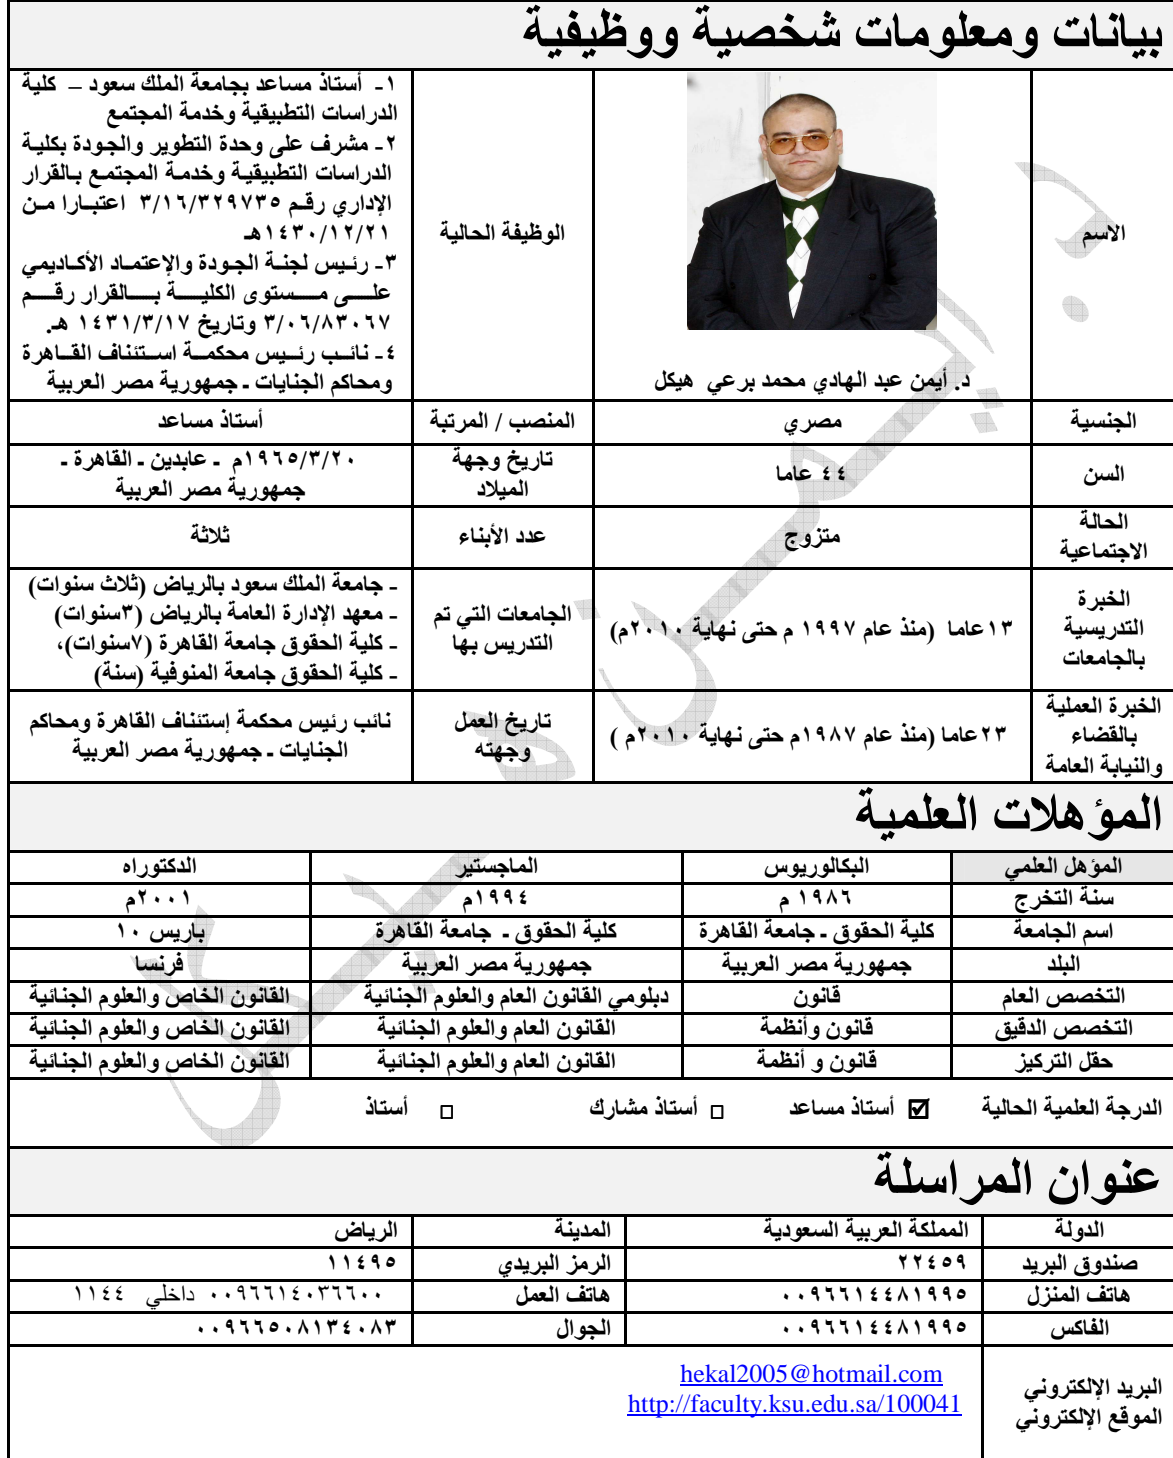 بيانات ومعلومات شخصية ووظيفية
الاسم
د. أيمن عبد الهادي محمد برعي هيكل
الوظيفة الحالية
١- أستاذ مساعد بجامعة الملك سعود – كلية
الدراسات التطبيقية وخدمة المجتمع
٢- مشرف على وحدة التطوير والجودة بكلية
الدراسات التطبيقية وخدمة المجتمع بالقرار
الإداري رقم ٣/١٦/٣٢٩٧٣٥ اعتبارا من
١٤٣٠/١٢/٢١هـ
٣- رئيس لجنة الجودة والإعتماد الأكاديمي
على مستوى الكلية بالقرار رقم
٣/٠٦/٨٣٠٦٧ وتاريخ ١٤٣١/٣/١٧ هـ.
٤- نائب رئيس محكمة استئناف القاهرة
ومحاكم الجنايات - جمهورية مصر العربية
الجنسية
مصري
المنصب / المرتبة
أستاذ مساعد
السن
٤٤ عاما
تاريخ وجهة
الميلاد
١٩٦٥/٣/٢٠م - عابدين - القاهرة -
جمهورية مصر العربية
الحالة
الاجتماعية
متزوج
عدد الأبناء
ثلاثة
الخبرة
التدريسية
بالجامعات
١٣عاما (منذ عام ١٩٩٧ م حتى نهاية ٢٠١٠م)
الجامعات التي تم
التدريس بها
- جامعة الملك سعود بالرياض (ثلاث سنوات)
- معهد الإدارة العامة بالرياض (٣سنوات)
- كلية الحقوق جامعة القاهرة (٧سنوات)،
- كلية الحقوق جامعة المنوفية (سنة)
الخبرة العملية
بالقضاء
والنيابة العامة
٢٣عاما (منذ عام ١٩٨٧م حتى نهاية ٢٠١٠م )
تاريخ العمل
وجهته
نائب رئيس محكمة إستئناف القاهرة ومحاكم
الجنايات - جمهورية مصر العربية
المؤهلات العلمية
المؤهل العلمي البكالوريوس الماجستير الدكتوراه
سنة التخرج ١٩٨٦ م ١٩٩٤م ٢٠٠١م
اسم الجامعة كلية الحقوق - جامعة القاهرة كلية الحقوق - جامعة القاهرة باريس ١٠
البلد جمهورية مصر العربية جمهورية مصر العربية فرنسا
التخصص العام قانون دبلومي القانون العام والعلوم الجنائية القانون الخاص والعلوم الجنائية
التخصص الدقيق قانون وأنظمة القانون العام والعلوم الجنائية القانون الخاص والعلوم الجنائية
حقل التركيز قانون و أنظمة القانون العام والعلوم الجنائية القانون الخاص والعلوم الجنائية
الدرجة العلمية الحالية ☑ أستاذ مساعد □ أستاذ مشارك □ أستاذ
عنوان المراسلة
الدولة المملكة العربية السعودية المدينة الرياض
صندوق البريد ٢٢٤٥٩ الرمز البريدي ١١٤٩٥
هاتف المنزل ٠٠٩٦٦١٤٤٨١٩٩٥ هاتف العمل ٠٠٩٦٦١٤٠٣٦٦٠٠ داخلي ١١٤٤
الفاكس ٠٠٩٦٦١٤٤٨١٩٩٥ الجوال ٠٠٩٦٦٥٠٨١٣٤٠٨٣
البريد الإلكتروني hekal2005@hotmail.com
الموقع الإلكتروني http://faculty.ksu.edu.sa/100041